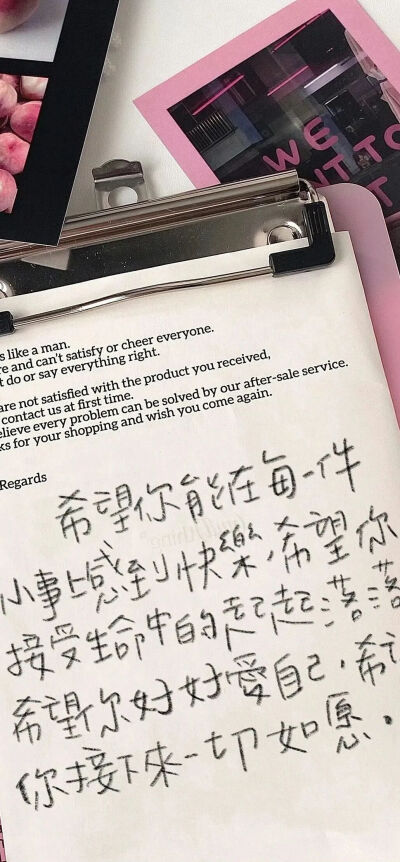 WE
NT TO
T
s like a man.
re and can't satisfy or cheer everyone.
t do or say everything right.
are not satisfied with the product you received,
contact us at first time.
elieve every problem can be solved by our after-sale service.
ks for your shopping and wish you come again.
Regards
希望你能在每一件
小事上感到快樂,希望你
接受生命中的起起落落
希望你好好愛自己,希
你接下來一切如愿.